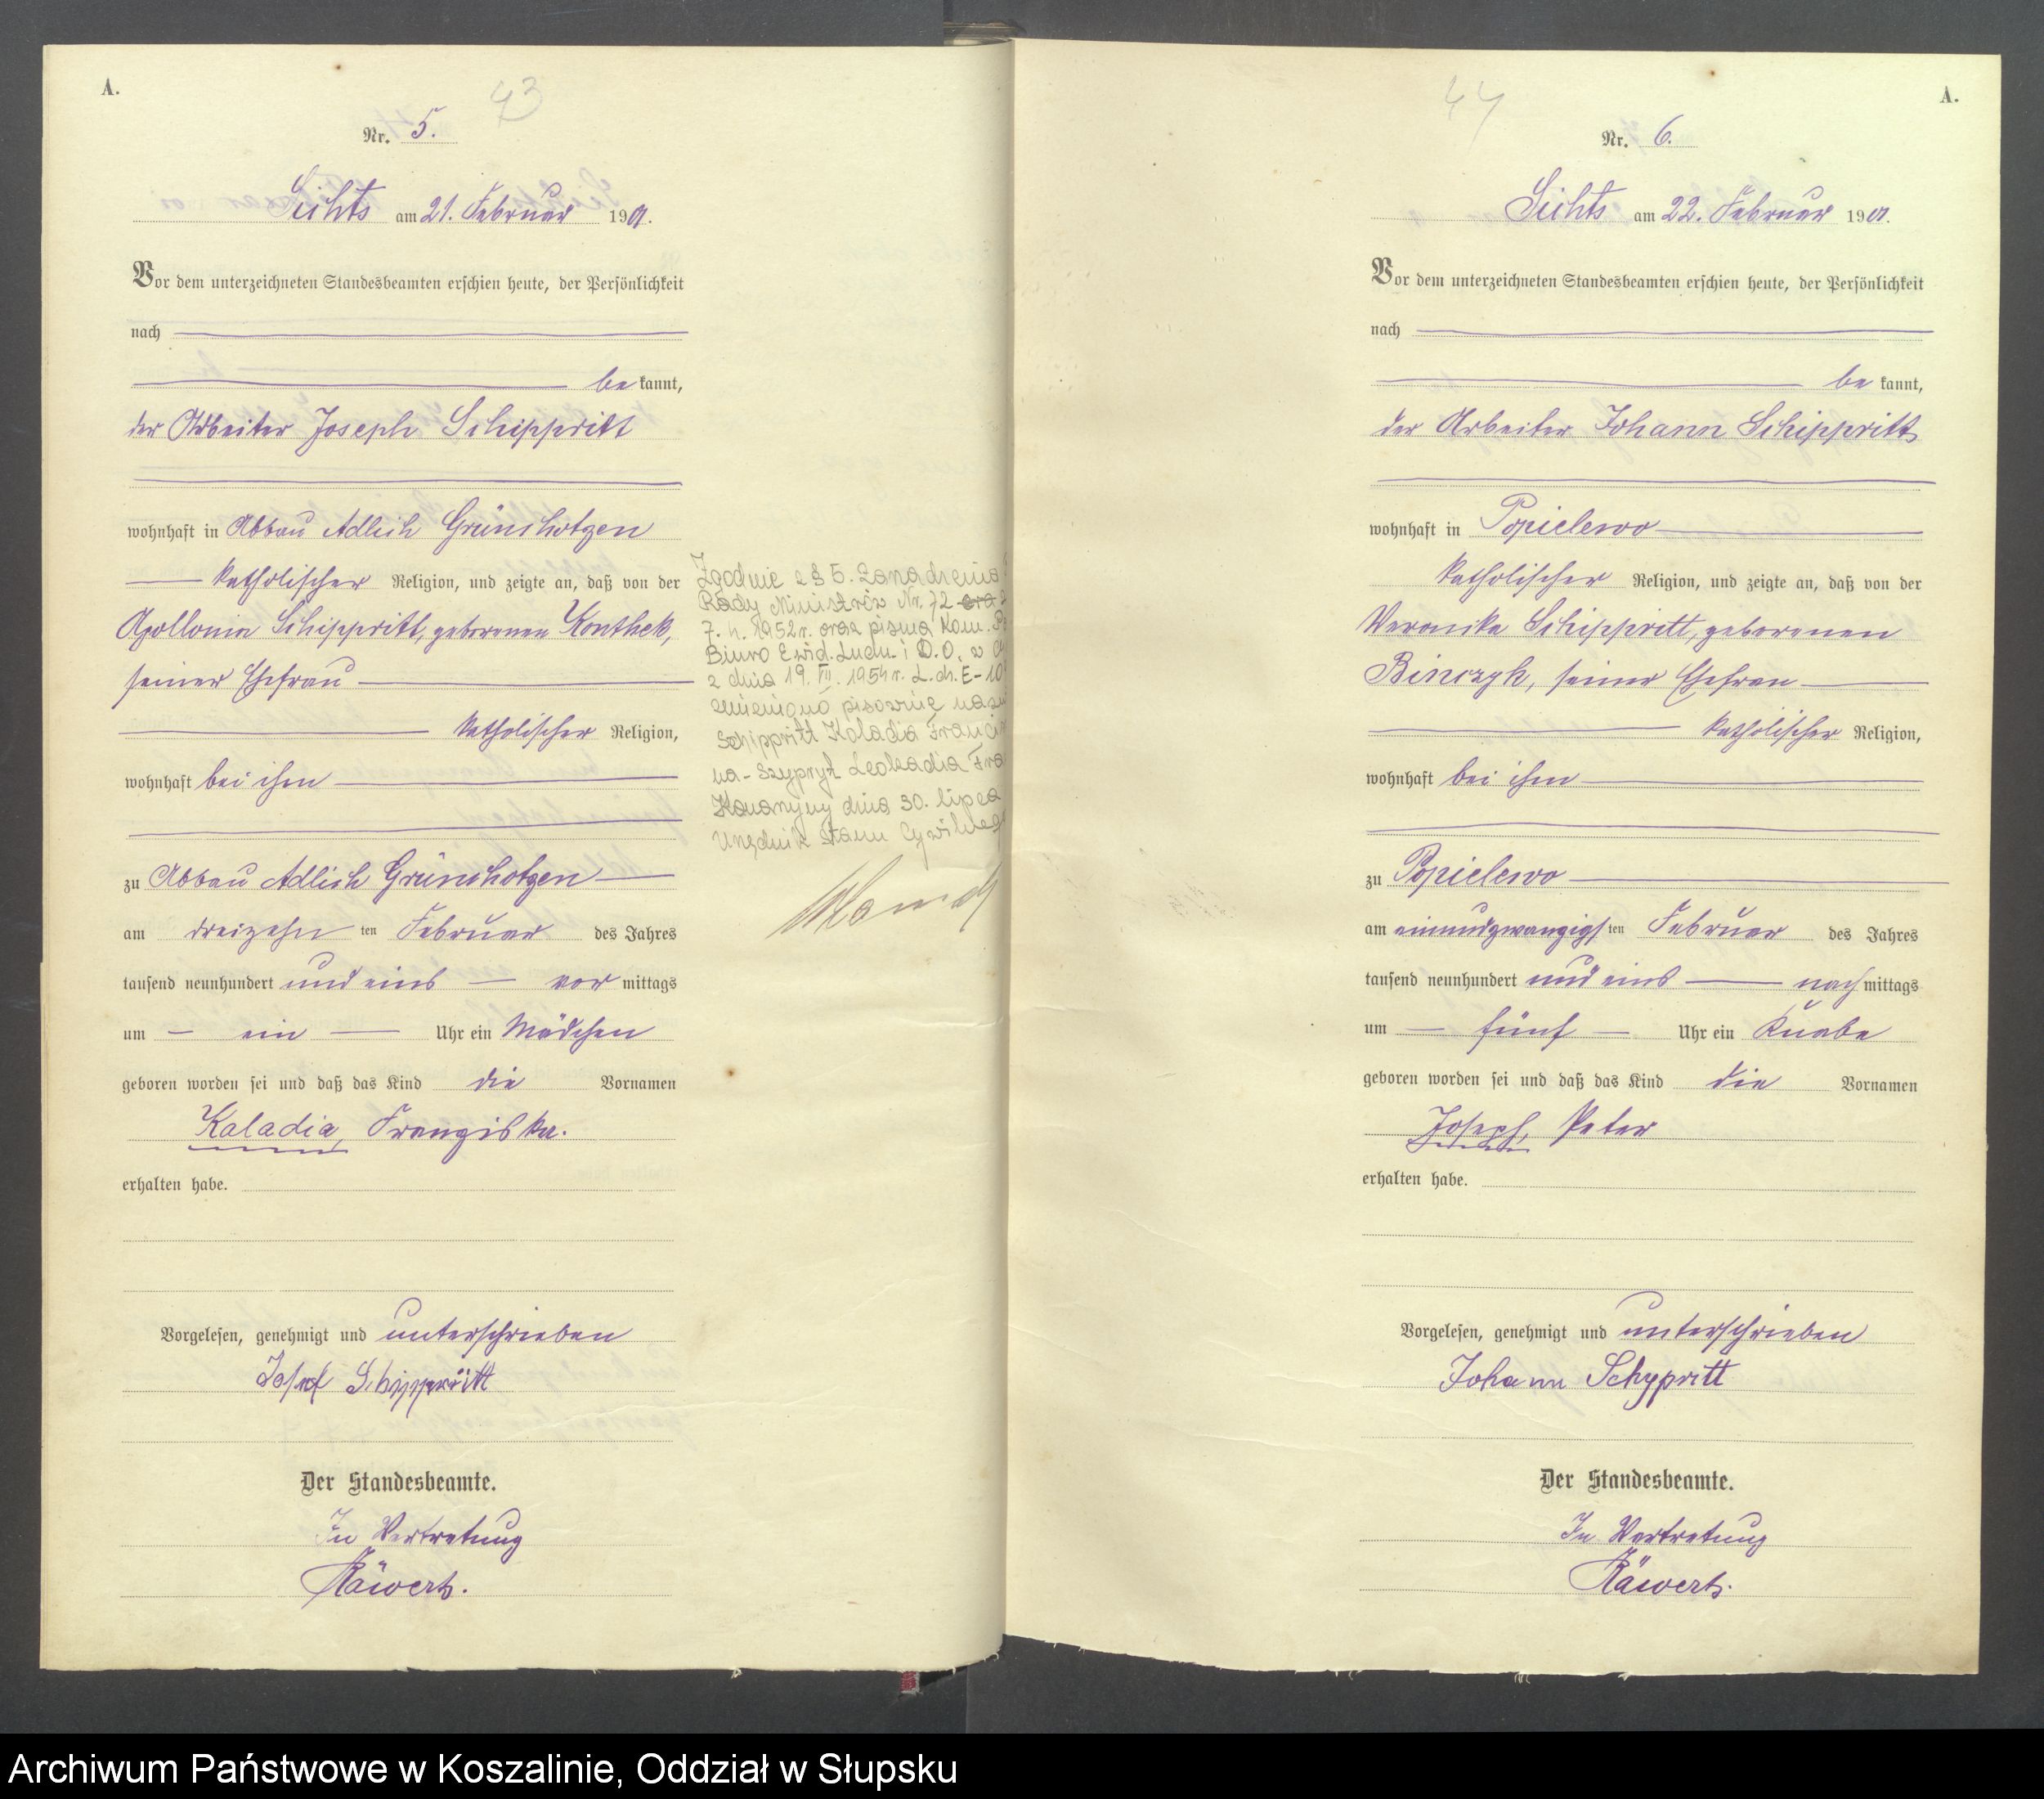 A.
43
Nr. 5.
Lichts am 21. Februar 1901.
Vor dem unterzeichneten Standesbeamten erschien heute, der Persönlichkeit
nach
be kannt,
der Arbeiter Joseph Schippritt
wohnhaft in Abbau Adlich Grünchotzen
katholischer Religion, und zeigte an, daß von der
Apollonia Schippritt, geborenen Konthek,
seiner Ehefrau
katholischer Religion,
wohnhaft bei ihm
zu Abbau Adlich Grünchotzen
am dreizehn ten Februar des Jahres
tausend neunhundert und eins vor mittags
um ein Uhr ein Mädchen
geboren worden sei und daß das Kind die Vornamen
Kaladia, Franziska.
erhalten habe.
Vorgelesen, genehmigt und unterschrieben
Josef Schippritt
Der Standesbeamte.
In Vertretung
Räwert.
Zgodnie z § 5. Zarządzenia
Rady Ministrów Nr. 72
7. II. 1952 r. oraz pisma Kom.
Biuro Ewid. Ludn. i D.O. w
z dnia 19. VII. 1954 r. L.dz. E-10
zmieniono pisownię
Schippritt Koladia
na - Szypryt Leokadia
dnia 30. lipca
Urzędnik Stanu
44
A.
Nr. 6.
Lichts am 22. Februar 1901.
Vor dem unterzeichneten Standesbeamten erschien heute, der Persönlichkeit
nach
be kannt,
der Arbeiter Johann Schippritt
wohnhaft in Popielewo
katholischer Religion, und zeigte an, daß von der
Veronika Schippritt, geborenen
Binczyk, seiner Ehefrau
katholischer Religion,
wohnhaft bei ihm
zu Popielewo
am einundzwanzigs ten Februar des Jahres
tausend neunhundert und eins nach mittags
um fünf Uhr ein Knabe
geboren worden sei und daß das Kind die Vornamen
Joseph, Peter
erhalten habe.
Vorgelesen, genehmigt und unterschrieben
Johann Schypritt
Der Standesbeamte.
In Vertretung
Räwert.
Archiwum Państwowe w Koszalinie, Oddział w Słupsku